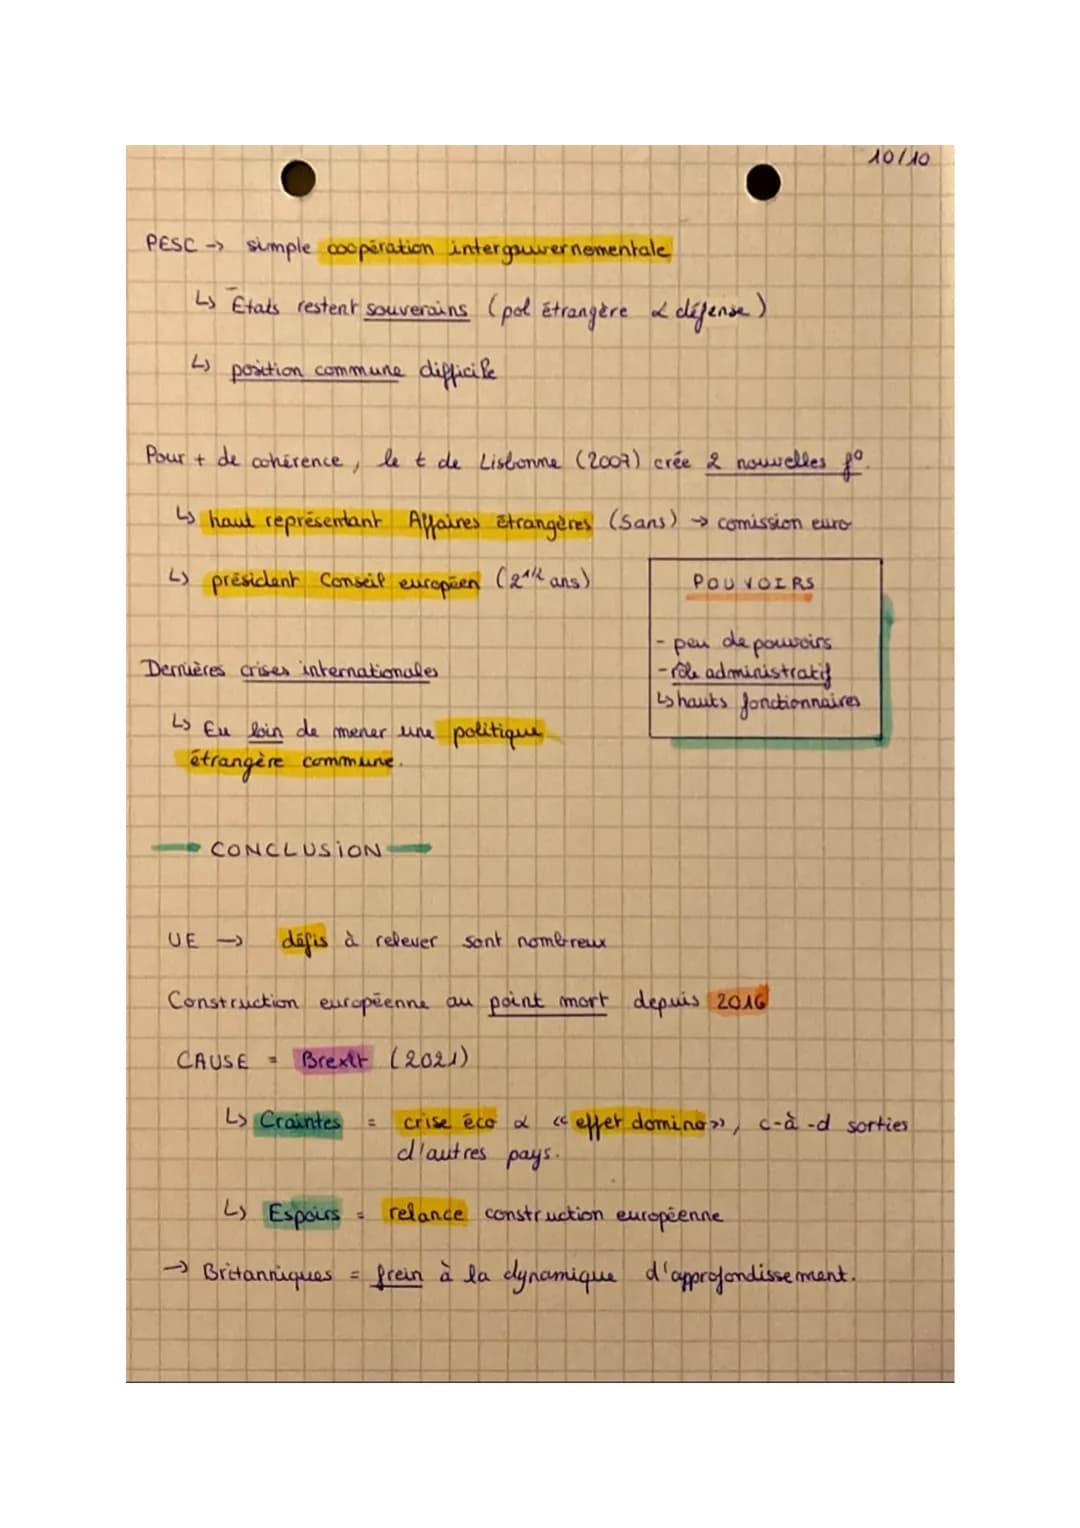 10/10
PESC → simple coopération intergouvernementale
↳ États restent souverains (pol étrangère & défense)
↳ position commune difficile
Pour + de cohérence, le t de Lisbonne (2007) crée 2 nouvelles f°.
↳ haut représentant Affaires étrangères (5ans) → comission euro
↳ président Conseil européen (2 1/2 ans)
POUVOIRS
- peu de pouvoirs
- rôle administratif
↳ hauts fonctionnaires
Dernières crises internationales
↳ Eu loin de mener une politique
étrangère commune.
CONCLUSION
UE → défis à relever sont nombreux
Construction européenne au point mort depuis 2016
CAUSE = Brexit (2021)
↳ Craintes = crise éco & « effet domino », c-à-d sorties
d'autres pays.
↳ Espoirs = relance construction européenne
→ Britanniques = frein à la dynamique d'approfondissement.